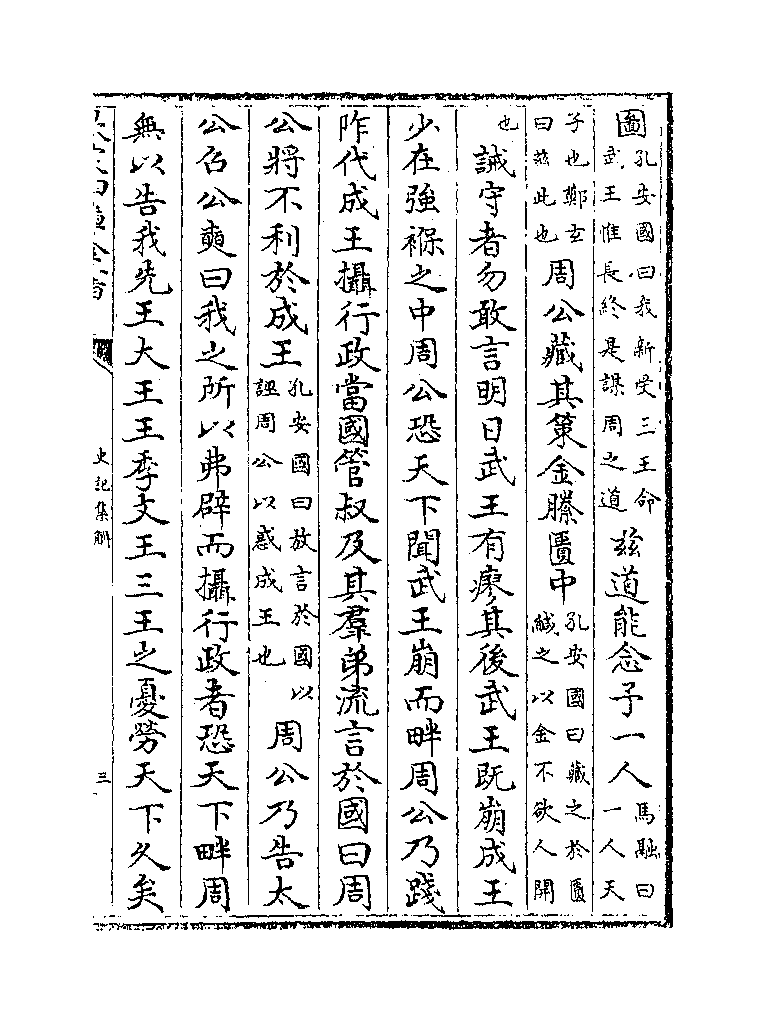 圖孔安國曰我新受三王命武王惟長終是謀周之道茲道能念予一人馬融曰一人天
子也鄭玄曰茲此也周公藏其策金縢匱中孔安國曰藏之於匱緘之以金不欲人開
也誡守者勿敢言明日武王有瘳其後武王既崩成王
少在強褓之中周公恐天下聞武王崩而畔周公乃踐
阼代成王攝行政當國管叔及其羣弟流言於國曰周
公將不利於成王孔安國曰放言於國以誣周公以惑成王也周公乃告太
公召公奭曰我之所以弗辟而攝行政者恐天下畔周
無以告我先王大王王季文王三王之憂勞天下久矣
史記集解
三